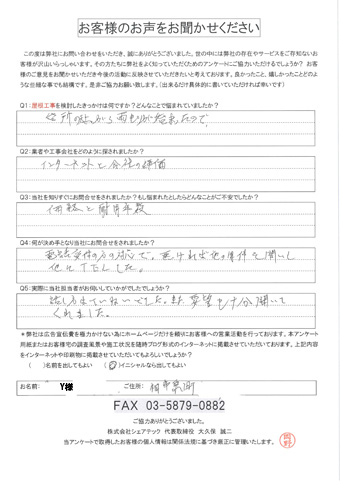 お客様のお声をお聞かせください
この度は弊社にお問い合わせをいただき、誠にありがとうございました。世の中には弊社の存在やサービスをご存知ないお
客様が沢山いらっしゃいます。その方たちに弊社をよく知っていただくためのアンケートにご協力いただけるでしょうか？お
客様のご意見をお聞かせいただき今後の活動に反映させていただきたいと考えております。良かったこと、嬉しかったことどのよ
うな些細な事でも結構です。是非ご協力お願い致します。（出来るだけ具体的に書いていただければ幸いです）
Q1：屋根工事を検討したきっかけは何ですか？どんなことで悩まれていましたか？
Q2：業者や工事会社をどのように探されましたか？
インターネットと会社の評価
Q3：当社を知りすぐにお問合せをされましたか？もし悩まれたとしたらどんなことがご不安でしたか？
価格と耐用年数
Q4：何が決め手となり当社にお問合せをされましたか？
Q5：実際に当社担当者がお伺いしていかがでしたでしょうか？
くれました。
＊弊社は広告宣伝費を極力かけない為にホームページだけを頼りにお客様への営業活動を行っております。本アンケート
用紙またはお客様宅の調査風景や施工状況を随時ブログ形式のインターネットに掲載させていただいております。上記内容
をインターネットや印刷物に掲載させていただいてもよろしいでしょうか？
（　）名前を出してもよい　（○）イニシャルなら出してもよい
お名前： Y様 ご住所：
FAX 03-5879-0882
ご協力ありがとうございました。
株式会社シェアテック 代表取締役 大久保 誠二
当アンケートで取得したお客様の個人情報は関係法規に基づき厳正に管理いたします。